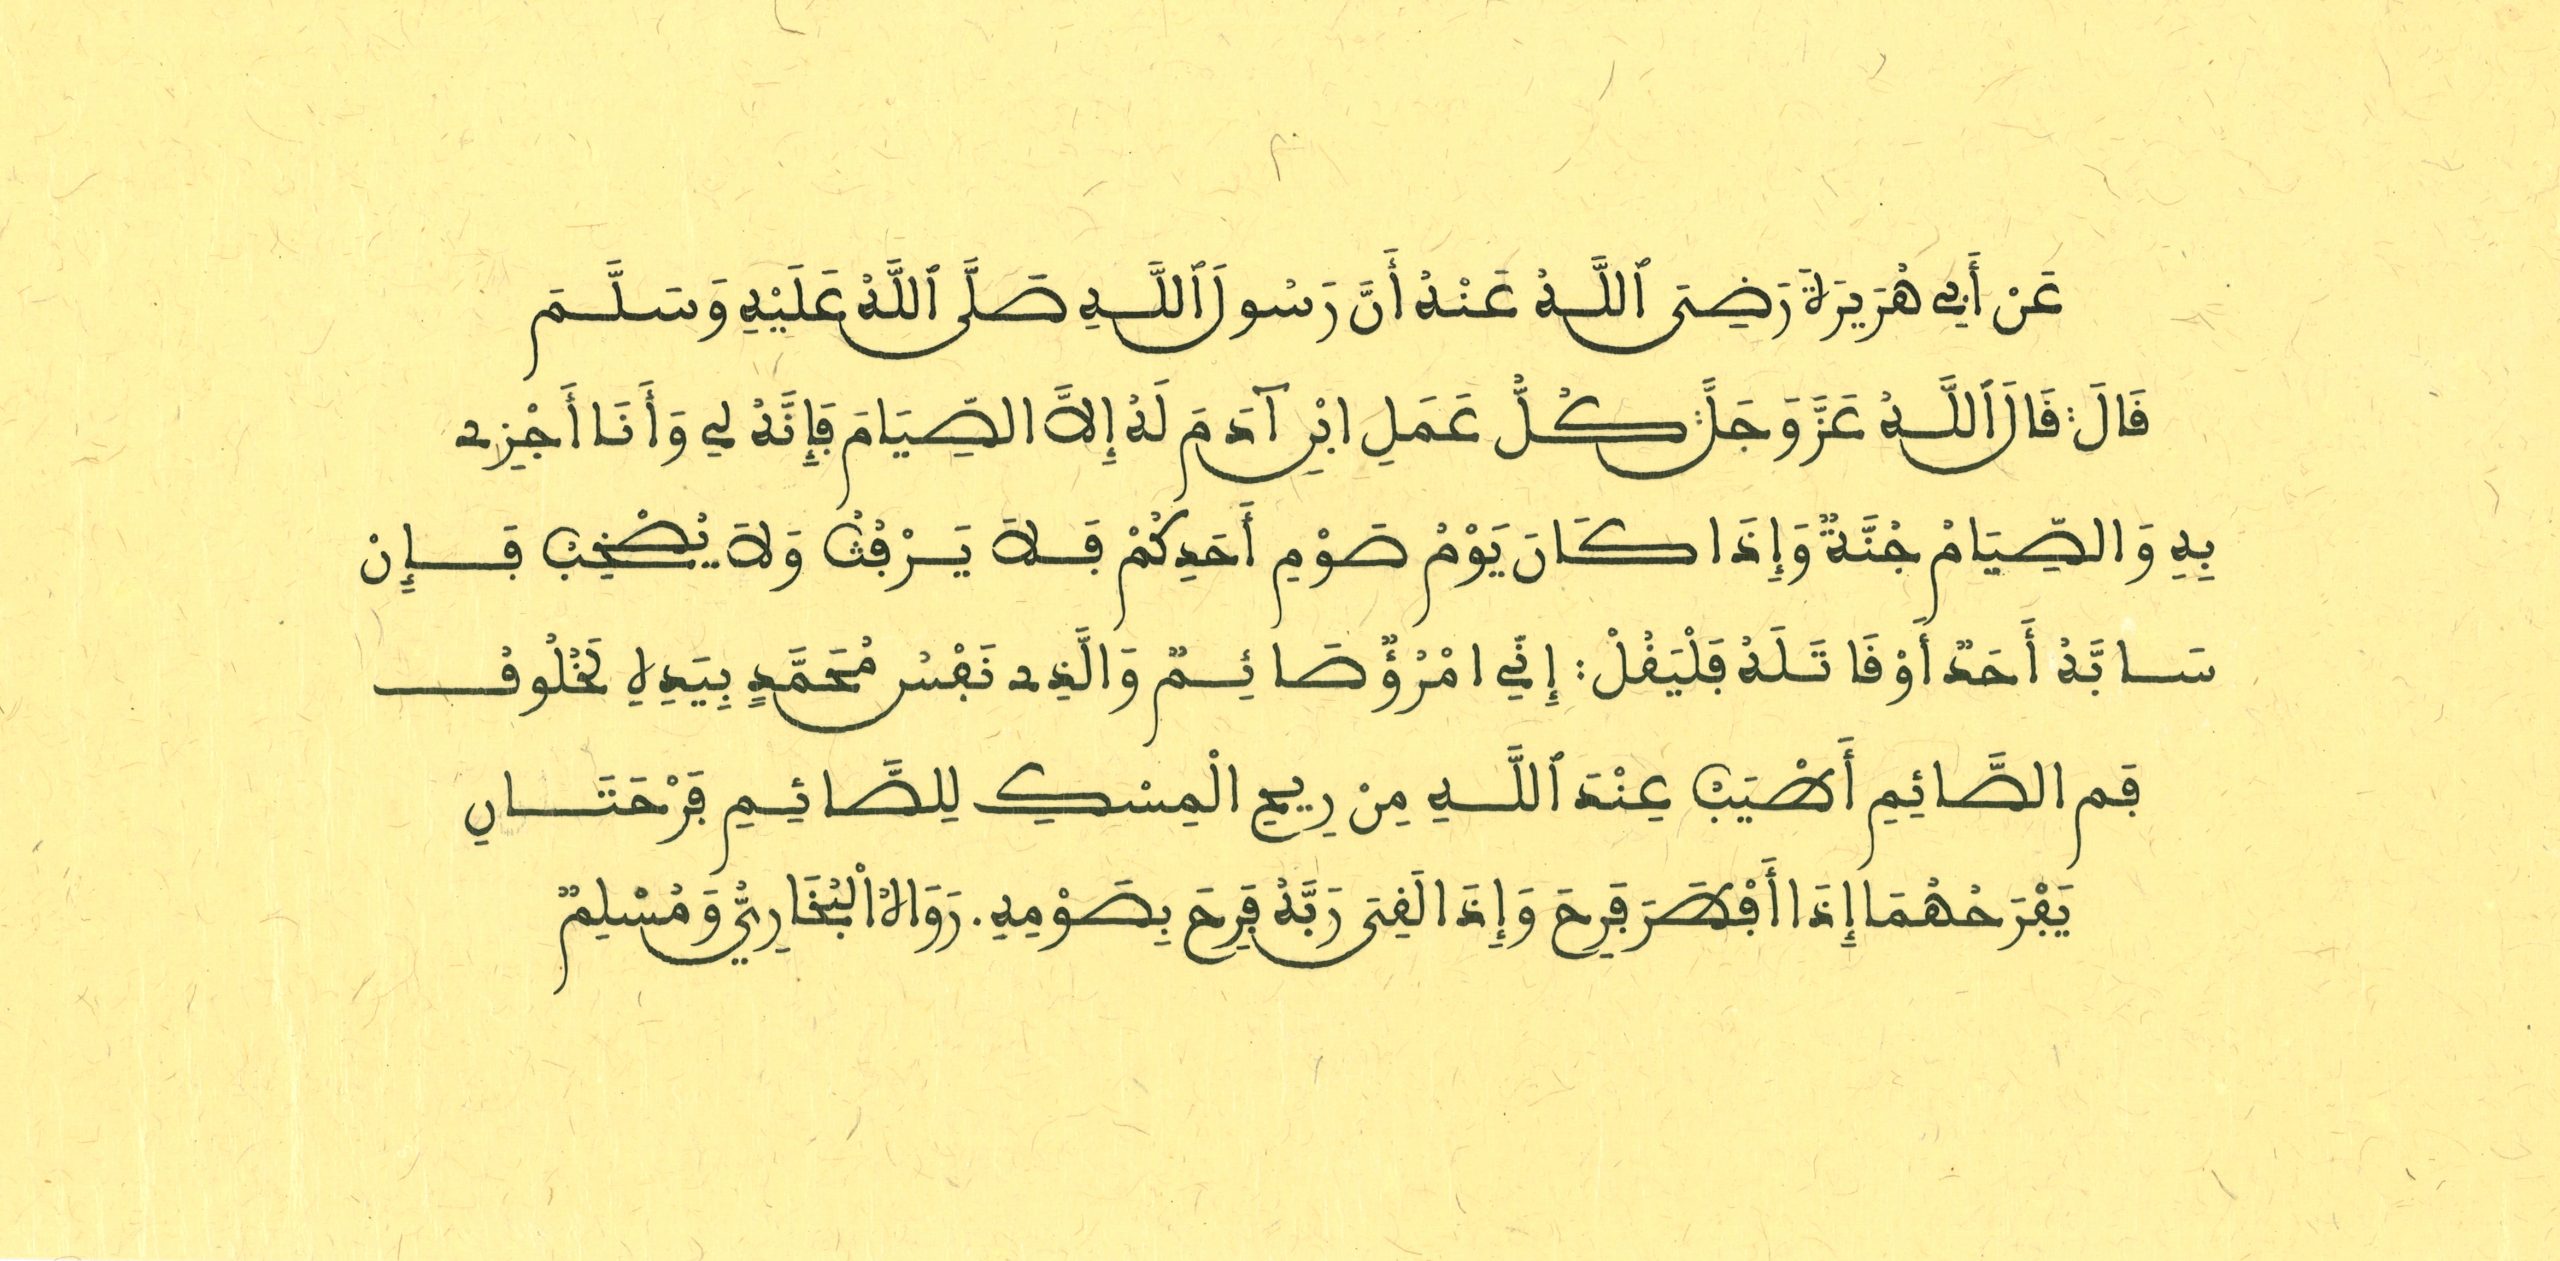 عَنْ أَبِي هُرَيْرَةَ رَضِيَ ٱللَّهُ عَنْهُ أَنَّ رَسُولَ ٱللَّهِ صَلَّى ٱللَّهُ عَلَيْهِ وَسَلَّمَ
قَالَ: قَالَ ٱللَّهُ عَزَّ وَجَلَّ: كُلُّ عَمَلِ ابْنِ آدَمَ لَهُ إِلاَّ الصِّيَامَ فَإِنَّهُ لِي وَأَنَا أَجْزِي
بِهِ وَالصِّيَامُ جُنَّةٌ وَإِذَا كَانَ يَوْمُ صَوْمِ أَحَدِكُمْ فَلاَ يَرْفُثْ وَلاَ يَصْخَبْ فَإِنْ
سَابَّهُ أَحَدٌ أَوْ قَاتَلَهُ فَلْيَقُلْ: إِنِّي امْرُؤٌ صَائِمٌ وَالَّذِي نَفْسُ مُحَمَّدٍ بِيَدِهِ لَخُلُوفُ
فَمِ الصَّائِمِ أَطْيَبُ عِنْدَ ٱللَّهِ مِنْ رِيحِ الْمِسْكِ لِلصَّائِمِ فَرْحَتَانِ
يَفْرَحُهُمَا إِذَا أَفْطَرَ فَرِحَ وَإِذَا لَقِيَ رَبَّهُ فَرِحَ بِصَوْمِهِ. رَوَاهُ الْبُخَارِيُّ وَمُسْلِمٌ